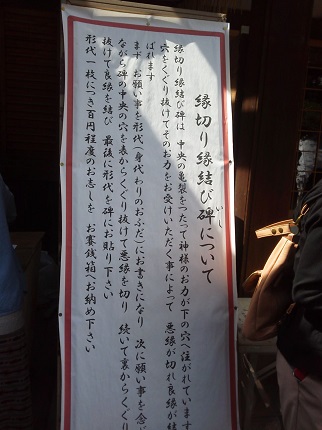 縁切り縁結び碑について
縁切り縁結び碑は 中央の亀裂をつたって神様のお力が下の穴へ注がれています
穴をくぐり抜けてそのお力をお受けいただく事によって 悪縁が切れ良縁が結
ばれます
まず お願い事を形代(身代わりのおふだ)にお書きになり 次に願い事を念じ
ながら碑の中央の穴を表からくぐり抜けて悪縁を切り 続いて裏からくぐり
抜けて良縁を結び 最後に形代を碑にお貼り下さい
形代一枚につき百円程度のお志しを お賽銭箱へお納め下さい